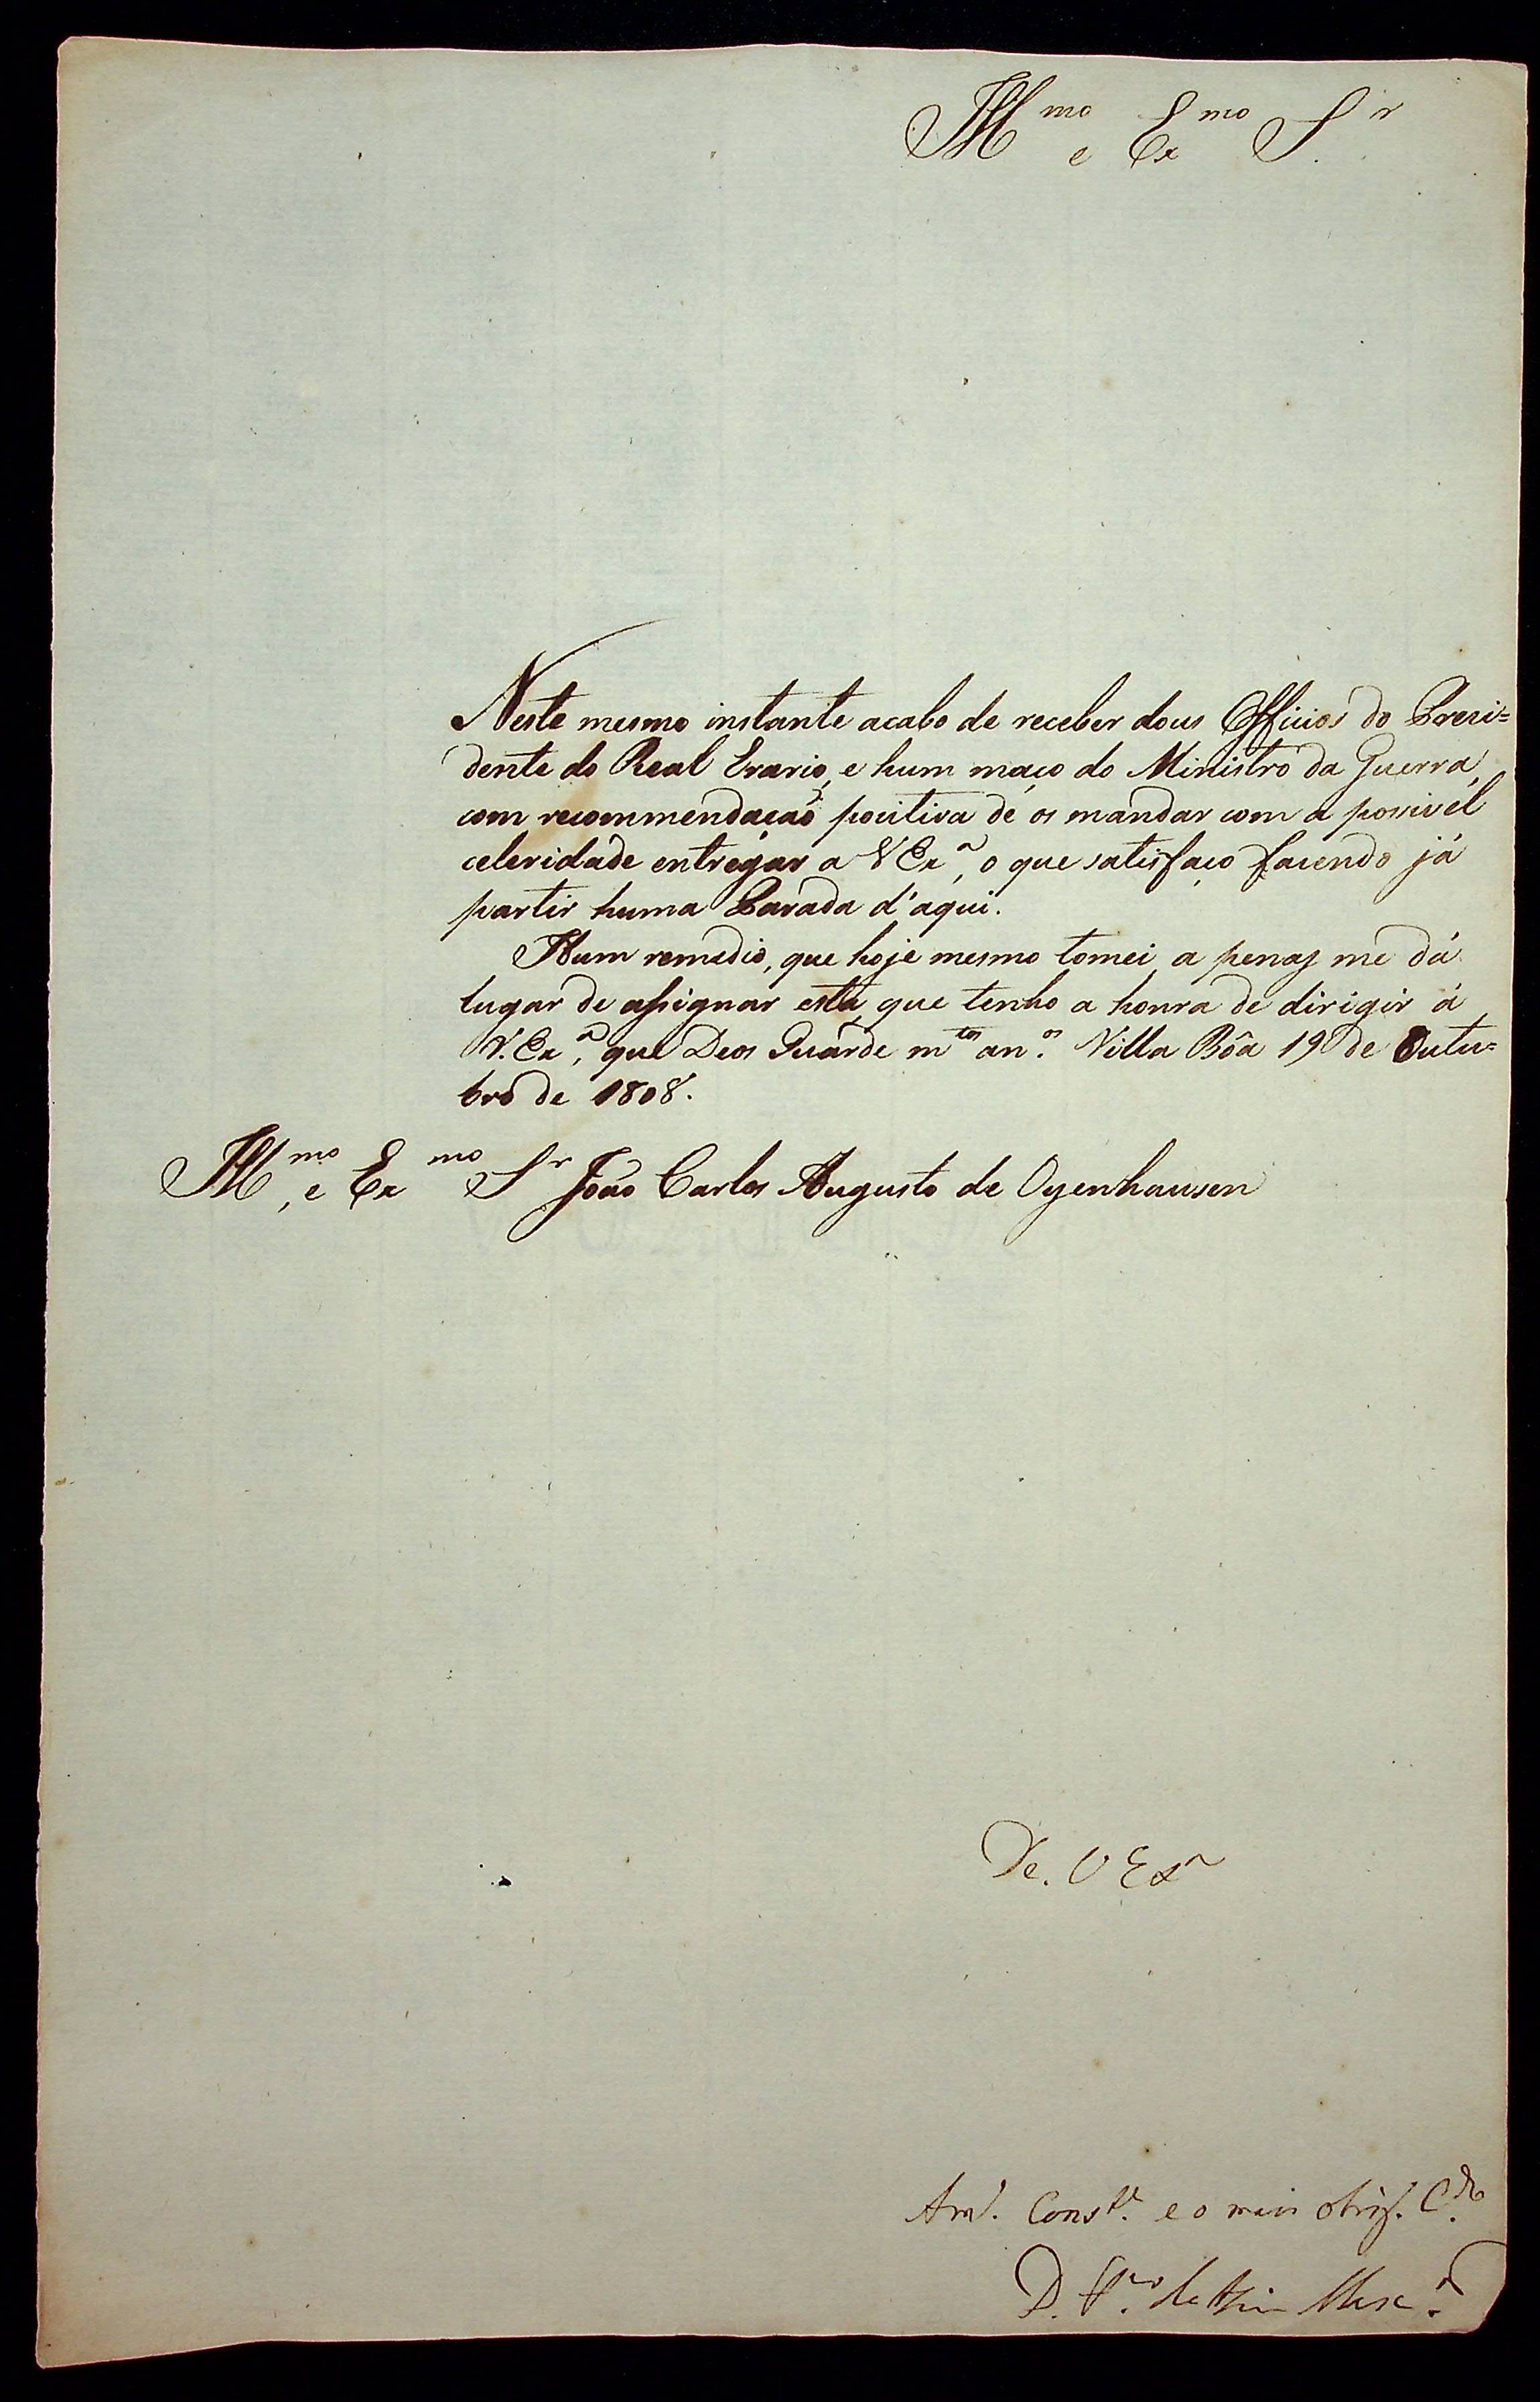 Ill.mo e Ex.mo S.r
Neste mesmo instante acabo de receber dous Officios do Prezi=
dente do Real Erario, e hum maço do Ministro da Guerra,
com recommendação pozitiva de os mandar com a possivel
celeridade entregar a VEx.a, o que satisfaço fazendo já
partir huma Parada d'aqui.
Hum remedio, que hoje mesmo tomei a penas me dá
lugar de assignar esta, que tenho a honra de dirigir á
V.Ex.a, que Deos Guarde m.tos an.os Villa Bôa 19 de Outu=
bro de 1808.
Ill.mo, e Ex.mo S.r João Carlos Augusto de Oyenhausen
De. V Ex.a
Am.o Const.e e o mais obrig. C.do
D. Fr.co de Assis Masc.